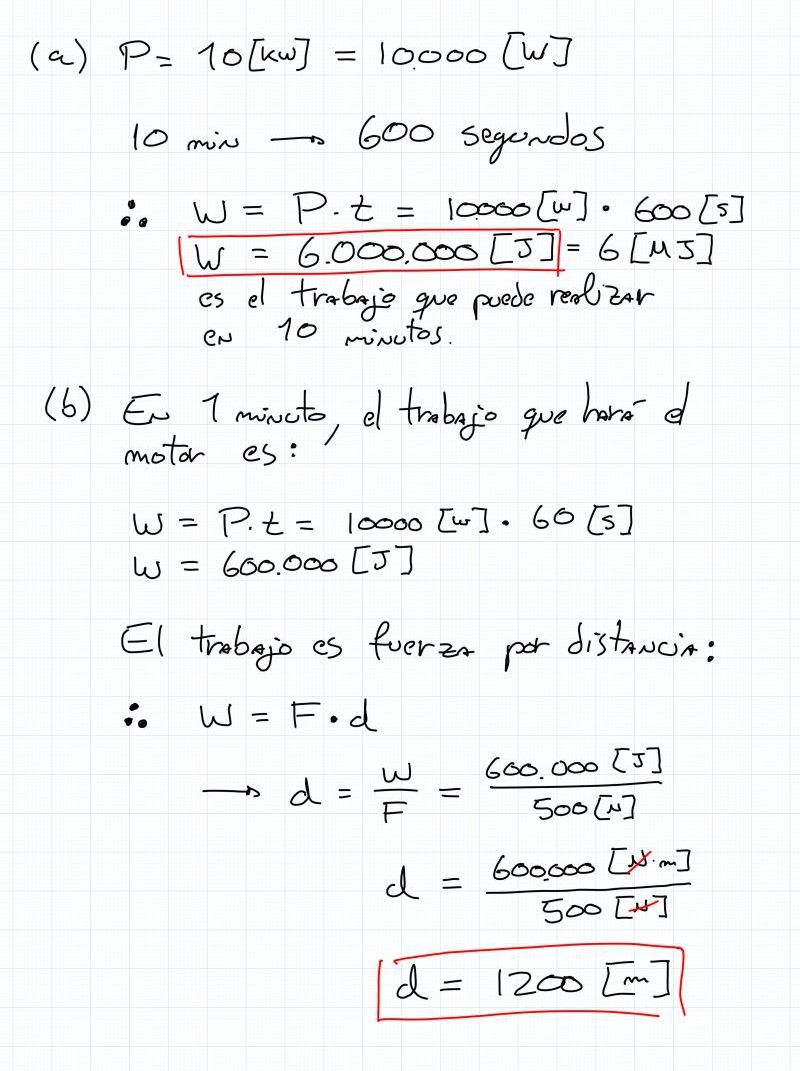 (a) P = 10 [kW] = 10.000 [W]
10 min → 600 segundos
∴ W = P·t = 10000 [W] · 600 [s]
W = 6.000.000 [J] = 6 [MJ]
es el trabajo que puede realizar
en 10 minutos.
(b) En 1 minuto, el trabajo que hará el
motor es:
W = P·t = 10000 [W] · 60 [s]
W = 600.000 [J]
El trabajo es fuerza por distancia:
∴ W = F·d
→ d = W/F = 600.000 [J]/500 [N]
d = 600.000 [N·m]/500 [N]
d = 1200 [m]